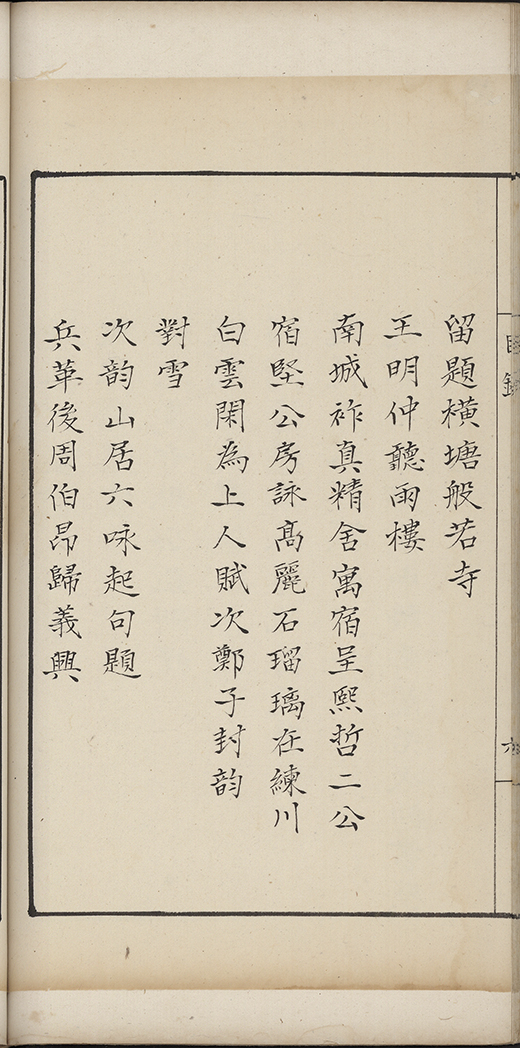 目錄
六
留題橫塘般若寺
王明仲聽雨樓
南城祚真精舍寓宿呈熙哲二公
宿堅公房詠髙麗石瑠璃在練川
白雲閑為上人賦次鄭子封韵
對雪
次韵山居六咏起句題
兵革後周伯昂歸義興